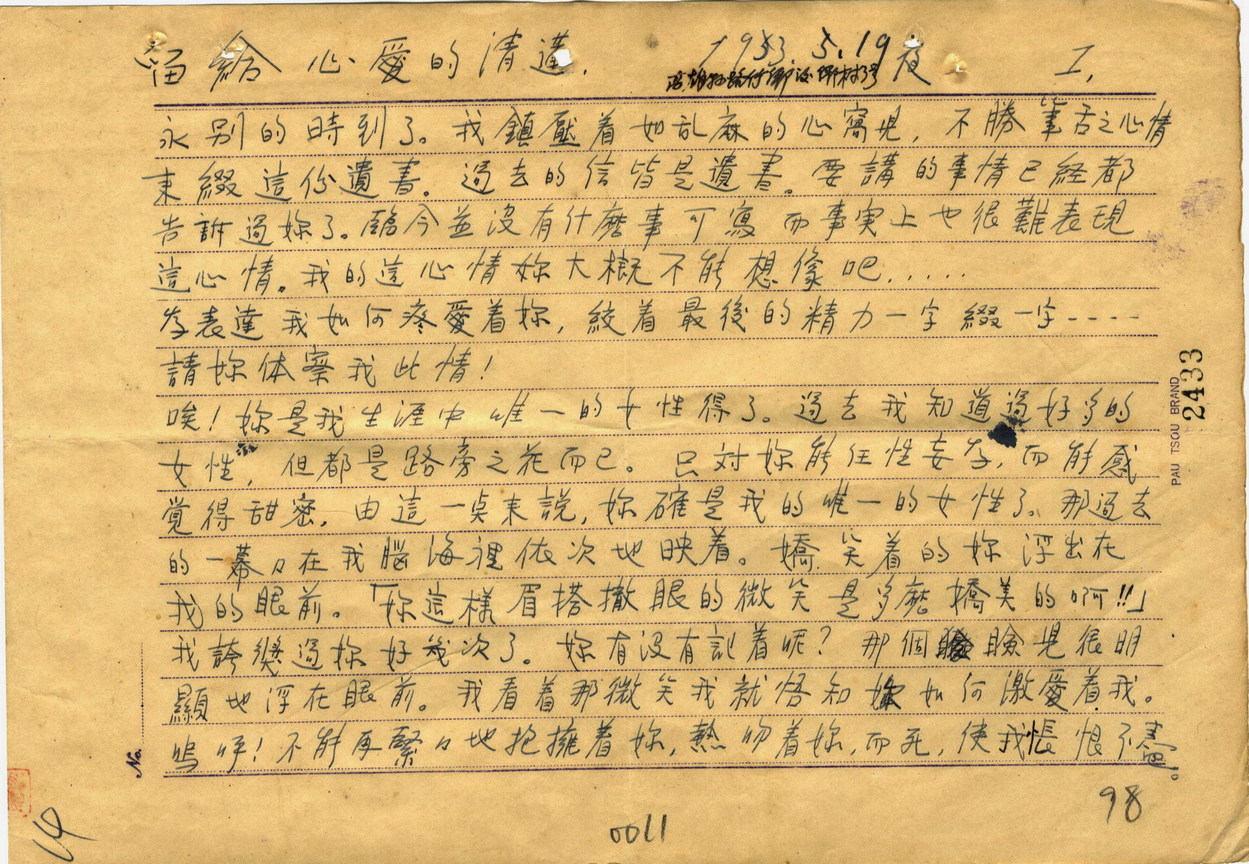 留給心愛的清蓮. 1953. 5.19夜 I.
永別的時到了。我鎮壓着如乱麻的心窩児，不勝筆舌之心情
来綴這份遺書。過去的信皆是遺書。要講的事情已経都
告訴過妳了。臨今並没有什麽事可寫而事実上也很難表現
這心情。我的這心情妳大概不能想像吧.....
為表達我如何疼愛着妳，絞着最後的精力一字綴一字----
請妳体察我此情！
唉！妳是我生涯中唯一的女性得了。過去我知道過好多的
女性，但都是路旁之花而已。只対妳能任性妄為，而能感
覚得甜密。由這一点来説，妳確是我的唯一的女性了。那過去
的一幕々在我脳海裡依次地映着。嬌笑着的妳浮出在
我的眼前。「妳這樣眉搭撤眼的微笑是多麽嬌美的啊!!」
我誇獎過妳好幾次了。妳有没有記着呢？那個臉児很明
顯地浮在眼前。我看着那微笑我就悟知妳如何激愛着我。
嗚呼！不能再緊々地抱擁着妳，熱吻着妳，而死，使我悵恨不盡。
No.
PAU TSOU BRAND
2433
98
0011